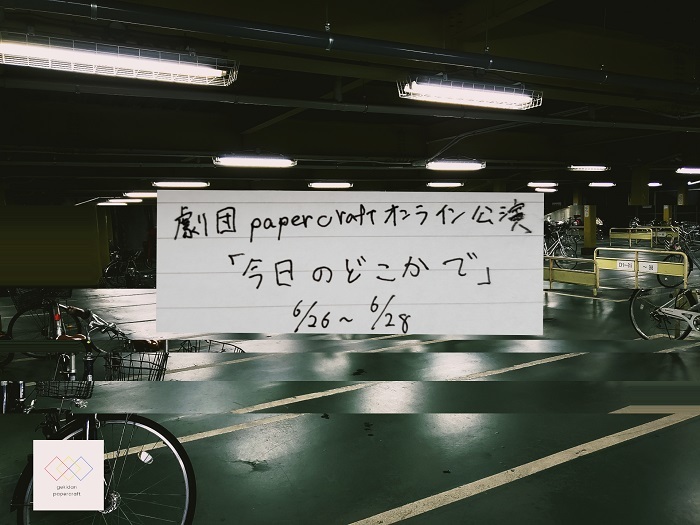 劇団 papercraft オンライン公演
「今日のどこかで」
6/26～6/28
gekidan
papercraft